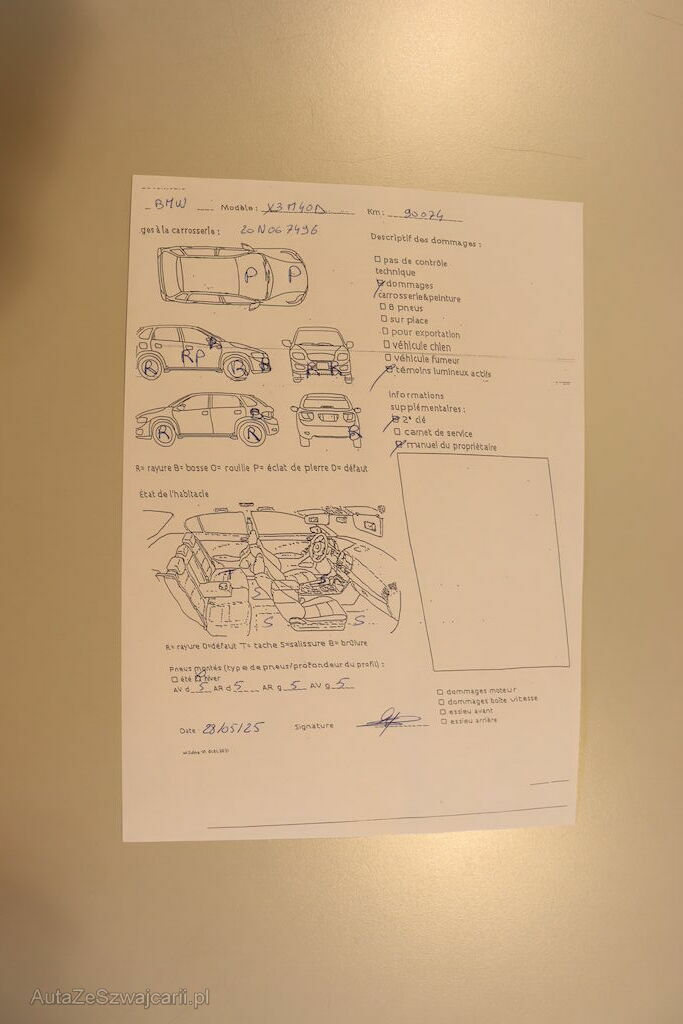 BMW Modèle : X3 M40D Km : 90074
ges à la carrosserie : 20N067496
Descriptif des dommages :
P P
□ pas de contrôle
technique
☑ dommages
carrosserie&peinture
□ 8 pneus
□ sur place
□ pour exportation
□ véhicule chien
□ véhicule fumeur
☑ témoins lumineux actifs
R RP R B B R R
R R B R
Informations
supplémentaires :
☑ 2° clé
□ carnet de service
☑ manuel du propriétaire
R= rayure B= bosse O= rouille P= éclat de pierre D= défaut
Etat de l'habitacle
S S S
R= rayure D=défaut T= tache S=salissure B= brûlure
Pneus montés (type de pneus/profondeur du profil) :
□ été ☑ hiver
AV d 5 AR d 5 AR g 5 AV g 5
□ dommages moteur
□ dommages boîte vitesse
□ essieu avant
□ essieu arrière
Date 28/05/25 Signature
AutaZeSzwajcarii.pl